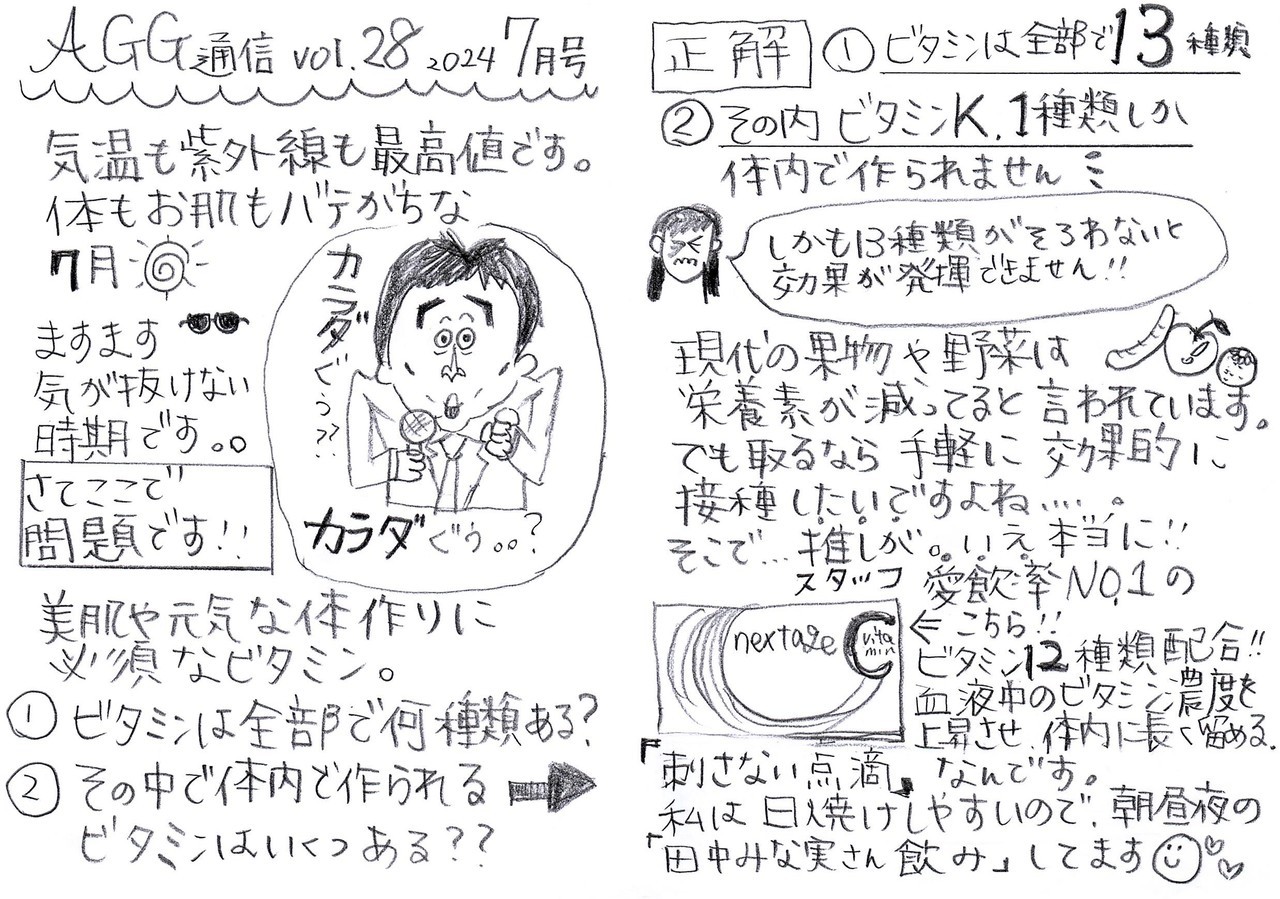 AGG通信 vol.28 2024 7月号
気温も紫外線も最高値です。
体もお肌もバテがちな
7月
ますます
気が抜けない
時期です。。
さてここで
問題です!!
カラダぐぅ??
カラダぐぅ。。?
美肌や元気な体作りに
必須なビタミン。
① ビタミンは全部で何種類ある?
② その中で体内で作られる
ビタミンはいくつある??
正解 ① ビタミンは全部で13種類
② その内 ビタミンK,1種類しか
体内で作られません
しかも13種類がそろわないと
効果が発揮できません!!
現代の果物や野菜は
栄養素が減ってると言われています。
でも取るなら手軽に効果的に
接種したいですよね....。
そこで...推しが。いえ本当に!!
スタッフ愛飲率NO,1の
←こちら!!
nextage C vita min
ビタミン12種類配合!!
血液中のビタミン濃度を
上昇させ、体内に長く留める.
『刺さない点滴』なんです。
私は日焼けしやすいので、朝昼夜の
「田中みな実さん飲み」してます